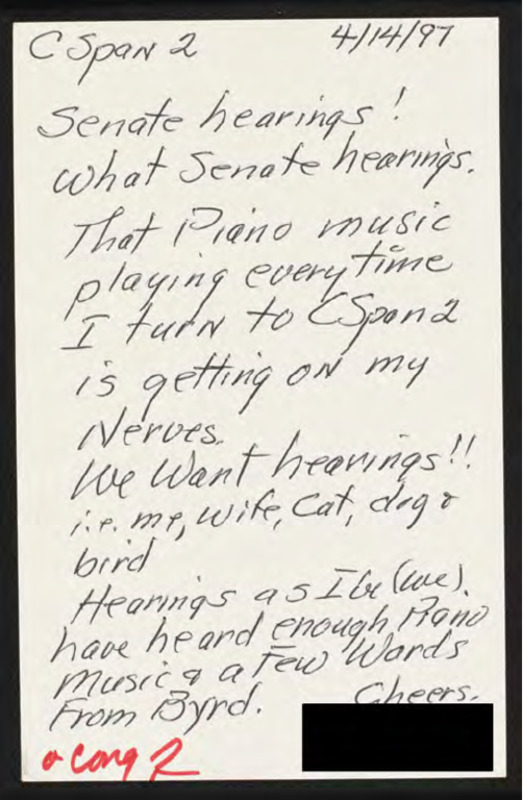 CSpan 2 4/14/97
Senate hearings!
What Senate hearings.
That Piano music
playing everytime
I turn to CSpan2
is getting on my
Nerves.
We Want hearings!!
i.e. me, wife, Cat, dog &
bird
Hearings as I (we)
have heard enough Piano
Music & a Few Words
From Byrd. Cheers.
& Cong